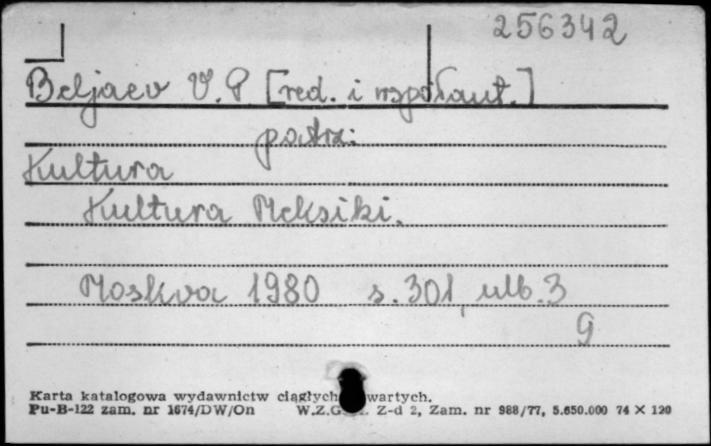 256342
Beljaev V.P [red. i współaut.]
patrz:
Kultura
Kultura Meksiki.
Moskva 1980 s. 301, nlb. 3
9
Karta katalogowa wydawnictw ciągłych wartych.
Pu-B-122 zam. nr 1674/DW/On W.Z.G Z-d 2, Zam. nr 988/77, 5.650.000 74 X 120